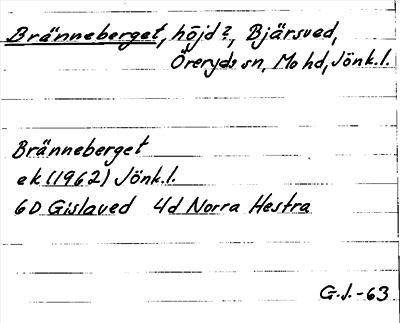 Bränneberget, höjd?, Bjärsved,
Öreryds sn, Mo hd, Jönk.l.
Bränneberget
ek (1962) Jönk.l.
6D Gislaved 4d Norra Hestra
G.J.-63